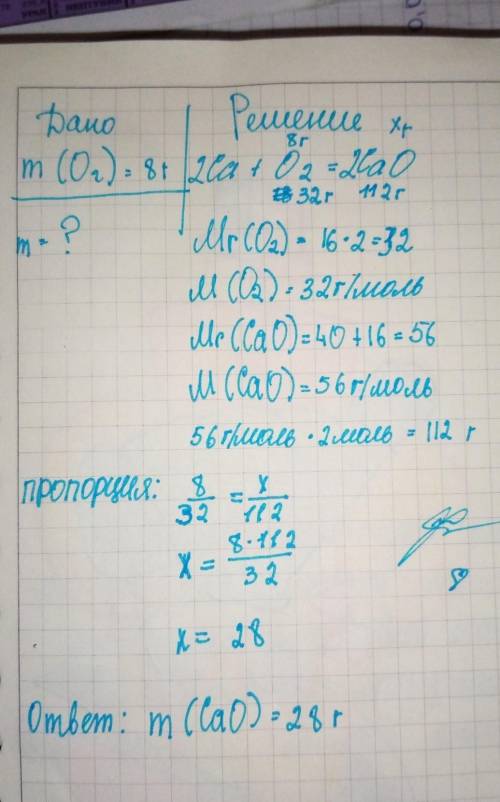 Дано
Решение
8г
xг
m (O₂) = 8г
2Ca + O₂ = 2CaO
32г 112г
m = ?
Mr(O₂) = 16·2=32
M(O₂) = 32г/моль
Mr(CaO)=40+16=56
M(CaO)=56г/моль
56г/моль · 2моль = 112 г
пропорция: 8/32 = x/112
x = 8·112/32
x = 28
Ответ: m (CaO) = 28 г